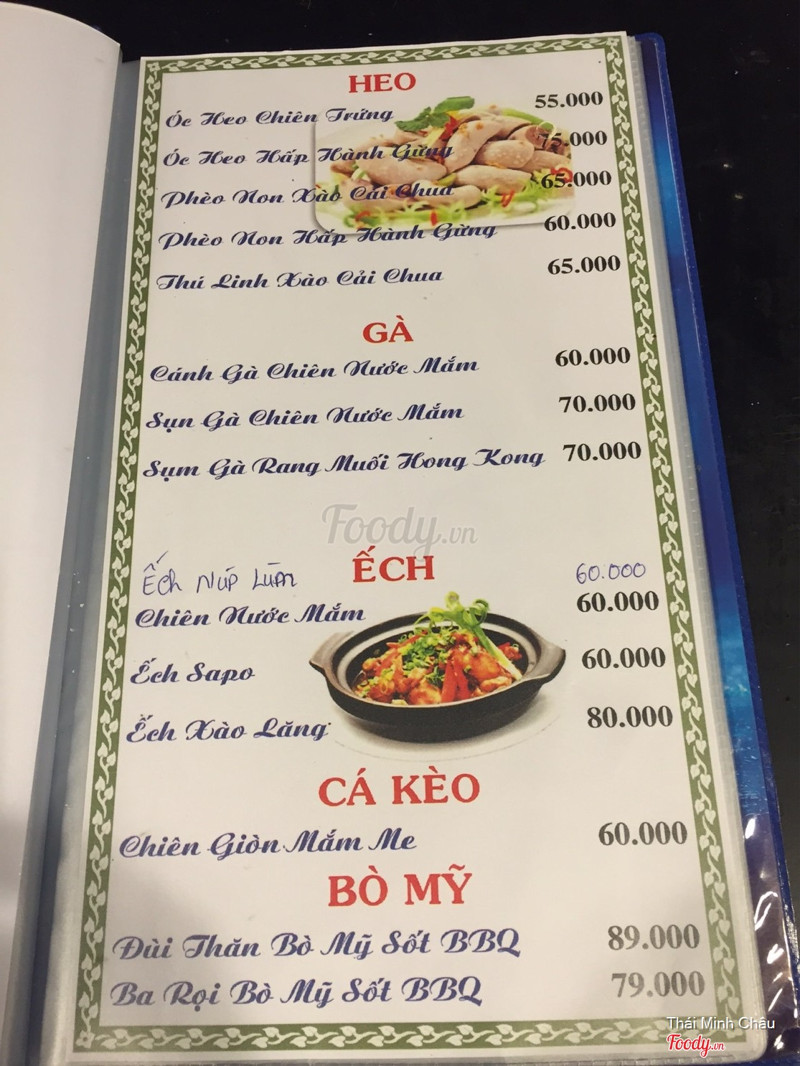 HEO
Óc Heo Chiên Trứng 55.000
Óc Heo Hấp Hành Gừng 75.000
Phèo Non Xào Cải Chua 65.000
Phèo Non Hấp Hành Gừng 60.000
Thú Linh Xào Cải Chua 65.000
GÀ
Cánh Gà Chiên Nước Mắm 60.000
Sụn Gà Chiên Nước Mắm 70.000
Sụm Gà Rang Muối Hong Kong 70.000
Foody.vn
ẾCH
Ếch Núp Lùm 60.000
Chiên Nước Mắm 60.000
Ếch Sapo 60.000
Ếch Xào Lăng 80.000
CÁ KÈO
Chiên Giòn Mắm Me 60.000
BÒ MỸ
Đùi Thăn Bò Mỹ Sốt BBQ 89.000
Ba Rọi Bò Mỹ Sốt BBQ 79.000
Thái Minh Châu
Foody.vn